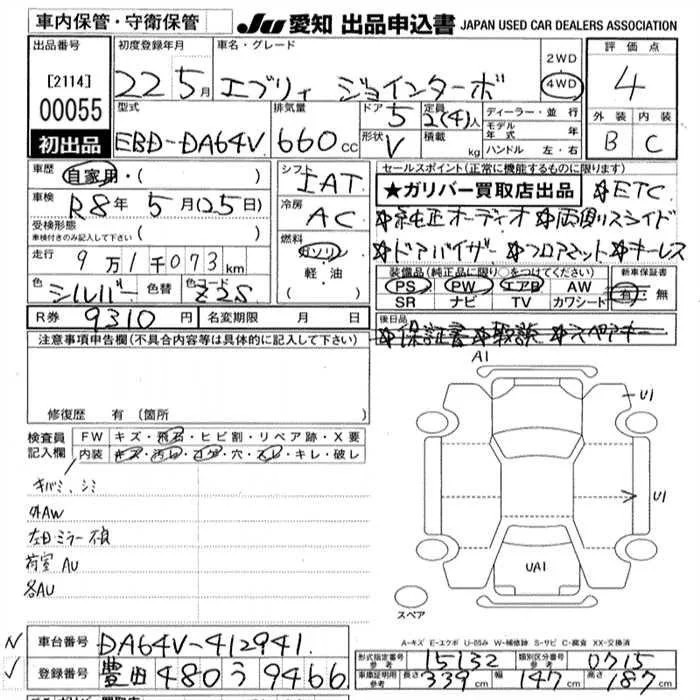 車内保管・守衛保管 JU 愛知 出品申込書 JAPAN USED CAR DEALERS ASSOCIATION
出品番号 初度登録年月 車名・グレード 2WD 4WD 評価点
[2114] 22 5月 エブリィ ジョインターボ 4
00055 型式 排気量 ドア 5 定員 2(4)人 ディーラー・並行 外装 内装
初出品 EBD-DA64V 660cc 形状 V 積載 kg モデル年式 年 ハンドル 左・右 B C
車歴 自家用・( ) シフト IAT セールスポイント(正常に機能するものに限ります)
車検 R8年 5月(25日) 冷房 AC ★ガリバー買取店出品 ☆ETC
受検形態 車検付きのみ記入して下さい ( ) ☆純正オーディオ ☆両側スライド
走行 9万1千073km 燃料 ガソリン ☆ドアバイザー ☆フロアマット ☆キーレス
色 シルバー 色替 色コード Z2S 軽・油 ( ) 装備品(純正品に限り○をつけてください) 新車保証書
PS PW エアB AW 有・無
SR ナビ TV カワシート
R券 9310円 名変期限 月 日 後日品
☆保証書 ☆取説 ☆スペアキー
注意事項申告欄(不具合内容等は具体的に記入して下さい)
A1
U1
修復歴 有 (箇所
検査員記入欄 FW キズ・飛石・ヒビ割・リペア跡・X要
内装 キズ・汚れ・コゲ・穴・スレ・キレ・破レ
キバミ、シミ
U1
外AW
左Dミラー不良
荷室AU
UA1
各AU
スペア
A-キズ E-エクボ U-凹み W-補修跡 S-サビ C-腐食 XX-交換済
車台番号 DA64V-412941 型式指定番号 参考 15132 類別区分番号 参考 0715
登録番号 豊田 480 う 9466 車庫証明用 参考 長さ 339cm 幅 147cm 高さ 187cm